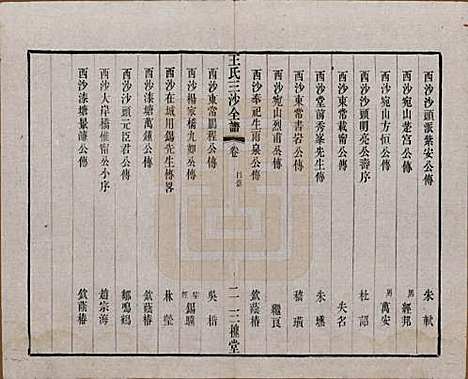 西沙沙頭派紫安公傳 朱軾
西沙宛山楚宮公傳 男經邦
西沙宛山方恒公傳 男萬安
西沙沙頭明亮公壽序 杜詔
西沙東常載甯公傳 失名
西沙堂前秀峯先生傳 朱壎
西沙東常書岩公傳 嵇璜
西沙宛山烈甫公傳
西沙奉祀生雨泉公傳 欽蔭椿
王氏三沙全譜
卷
目錄
二
三槐堂
西沙東常鵬程公傳 吳楷
西沙楊家橋九如公傳
西沙在城用錫先生傳畧 林瑩
西沙漆塘萬鍾公傳 欽蔭椿
西沙沙頭元臣君公傳 鄒鳴鶴
西沙大岸橋德甯公小序 趙宗海
西沙漆塘景灝公傳 欽蔭椿